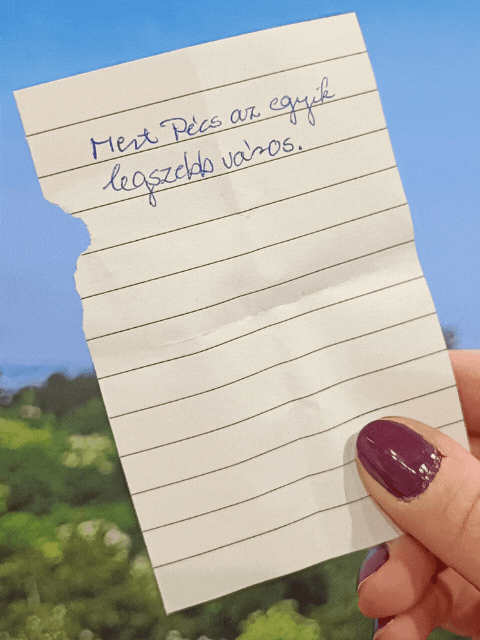 Mert Pécs az egyik
legszebb város.